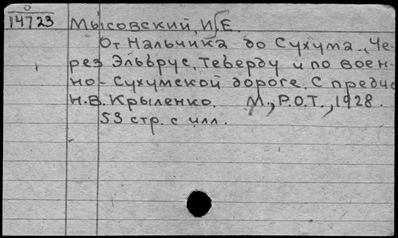 14723 Мысовский, И.Е.
От Нальчика до Сухума. Че-
рез Эльбрус, Теберду и по воен-
но-Сухумской дороге. С предис
Н.В. Крыленко. М., Р.О.Т., 1928.
53 стр. с илл.